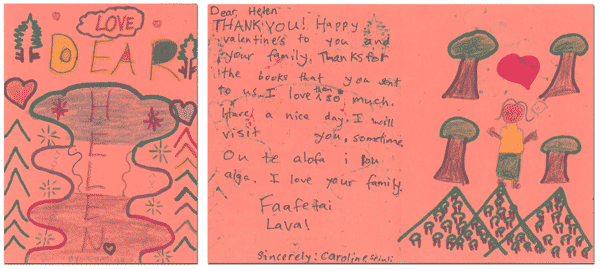 LOVE
DEAR
HELEN
Dear, Helen
THANK YOU! Happy
valentine's to you and
your family. Thanks for
the books that you sent
to us. I love them so much.
Have a nice day. I will
visit you, sometime.
Ou te alofa i
alga. I love your family.
Faafetai
Lava!
Sincerely: Caroline